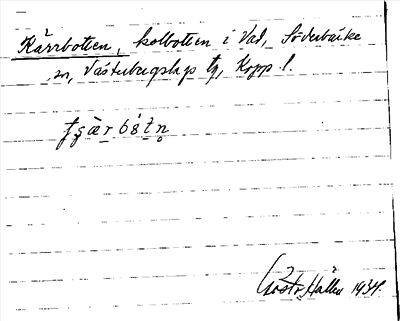 Kärrbotten, kolbotten i Vad, Söderbärke
sn, Västerbergslags tg, Kopp. l.
Gösta Hallin 1934.